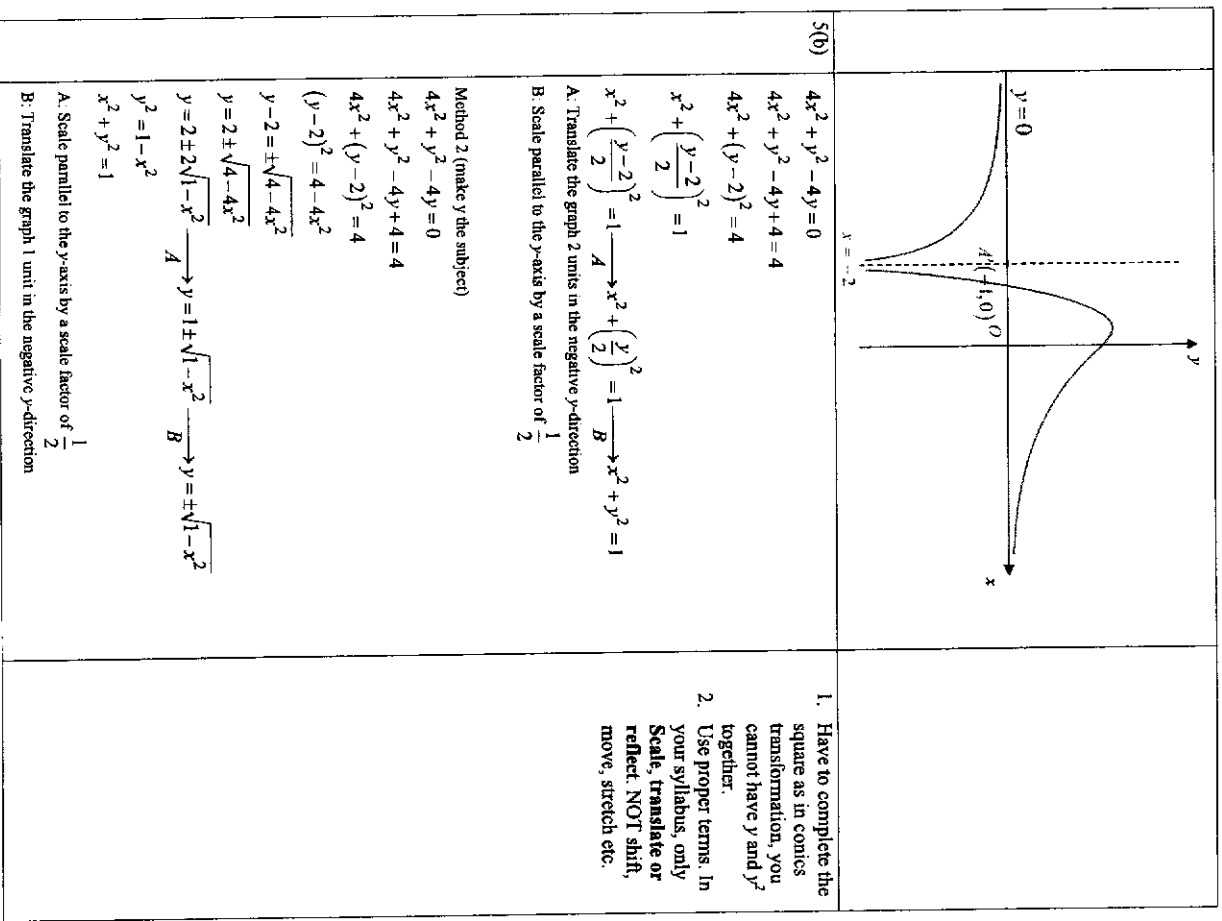 y
y = 0
A'(−1,0)
O
x
x = −2
5(b)
4x² + y² − 4y = 0
4x² + y² − 4y + 4 = 4
4x² + (y − 2)² = 4
x² + ((y − 2)/2)² = 1
x² + ((y − 2)/2)² = 1 —A→ x² + (y/2)² = 1 —B→ x² + y² = 1
A: Translate the graph 2 units in the negative y-direction
B: Scale parallel to the y-axis by a scale factor of 1/2
Method 2 (make y the subject)
4x² + y² − 4y = 0
4x² + y² − 4y + 4 = 4
4x² + (y − 2)² = 4
(y − 2)² = 4 − 4x²
y − 2 = ±√(4 − 4x²)
y = 2 ± √(4 − 4x²)
y = 2 ± 2√(1 − x²) —A→ y = 1 ± √(1 − x²) —B→ y = ±√(1 − x²)
y² = 1 − x²
x² + y² = 1
A: Scale parallel to the y-axis by a scale factor of 1/2
B: Translate the graph 1 unit in the negative y-direction
1. Have to complete the
square as in conics
transformation, you
cannot have y and y²
together.
2. Use proper terms. In
your syllabus, only
Scale, translate or
reflect. NOT shift,
move, stretch etc.